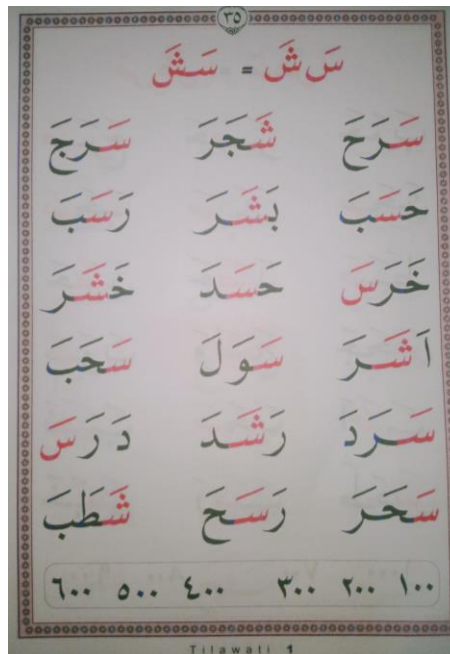 ٣٥
سَ شَ = سَـشَ
سَرَحَ شَجَرَ سَرَجَ
حَسَبَ بَشَرَ رَسَبَ
خَرَسَ حَسَدَ خَشَرَ
اَشَرَ سَوَلَ سَحَبَ
سَرَدَ رَشَدَ دَرَسَ
سَحَرَ رَسَحَ شَطَبَ
١٠٠ ٢٠٠ ٣٠٠ ٤٠٠ ٥٠٠ ٦٠٠
Tilawati 1